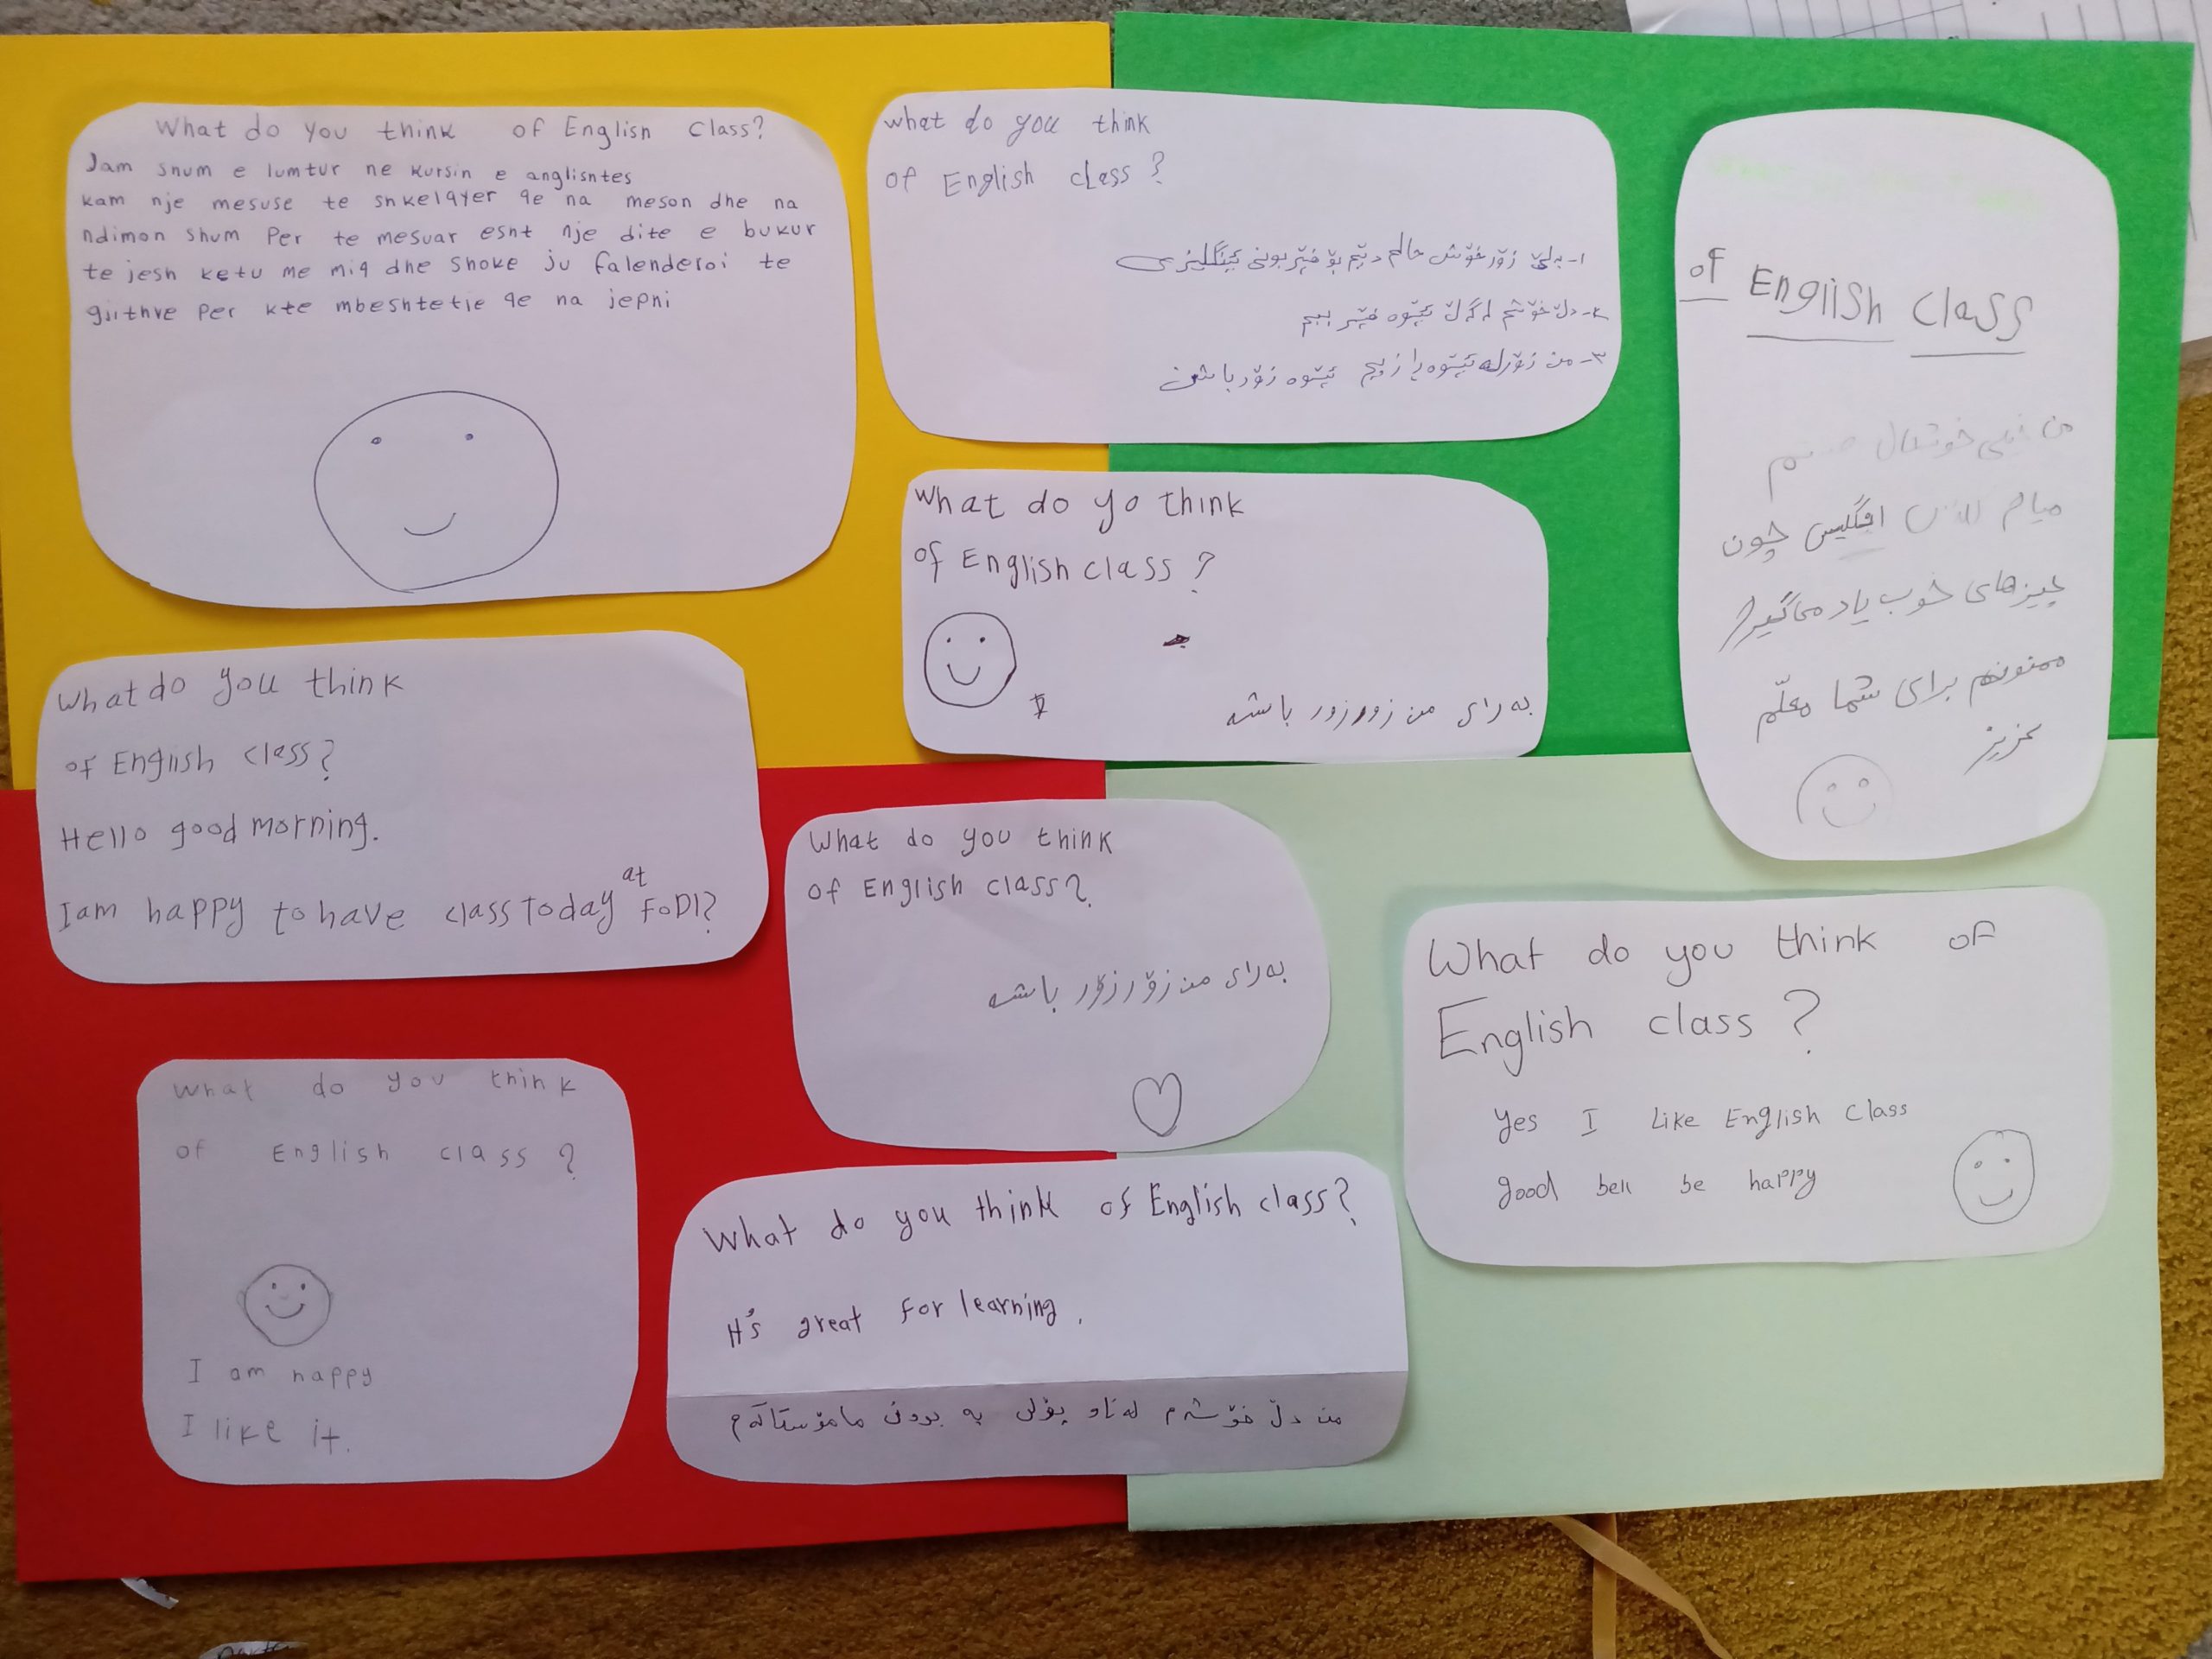 What do you think of Englisn Class?
Jam snum e lumtur ne kursin e anglisntes
kam nje mesuse te snkelqyer qe na meson dhe na
ndimon shum Per te mesuar esnt nje dite e bukur
te jesh ketu me miq dhe shoke ju falenderoi te
gjithve per kte mbeshtetje qe na jepni
what do you think
of English class?
١- بەلێ زۆر خۆش حالم دێم بۆ فێربونی ئینگلیزی
٢- دڵ خۆشم لەگەڵ ئێوە فێر ببم
٣- من زۆر لە ئێوە ڕازیم ئێوە زۆر باشن
of English class
من خیلی خوشحال
میام انگلیس چون
چیزهای خوب یاد می‌گیرم
ممنونم برای شما معلّم
عزیز
What do yo think
of English class?
بەرای من زور زور باشە
What do you think
of English class?
Hello good morning.
I am happy to have class today at FODI?
What do you think
of English class?
بەرای من زۆر زۆر باشە
What do you think of
English class?
Yes I Like English Class
good be happy
What do you think
of English class?
I am happy
I like it.
What do you think of English class?
It's great for learning.
من دڵ خۆشەم لەناو پۆلی بە بوون مامۆستاکەم